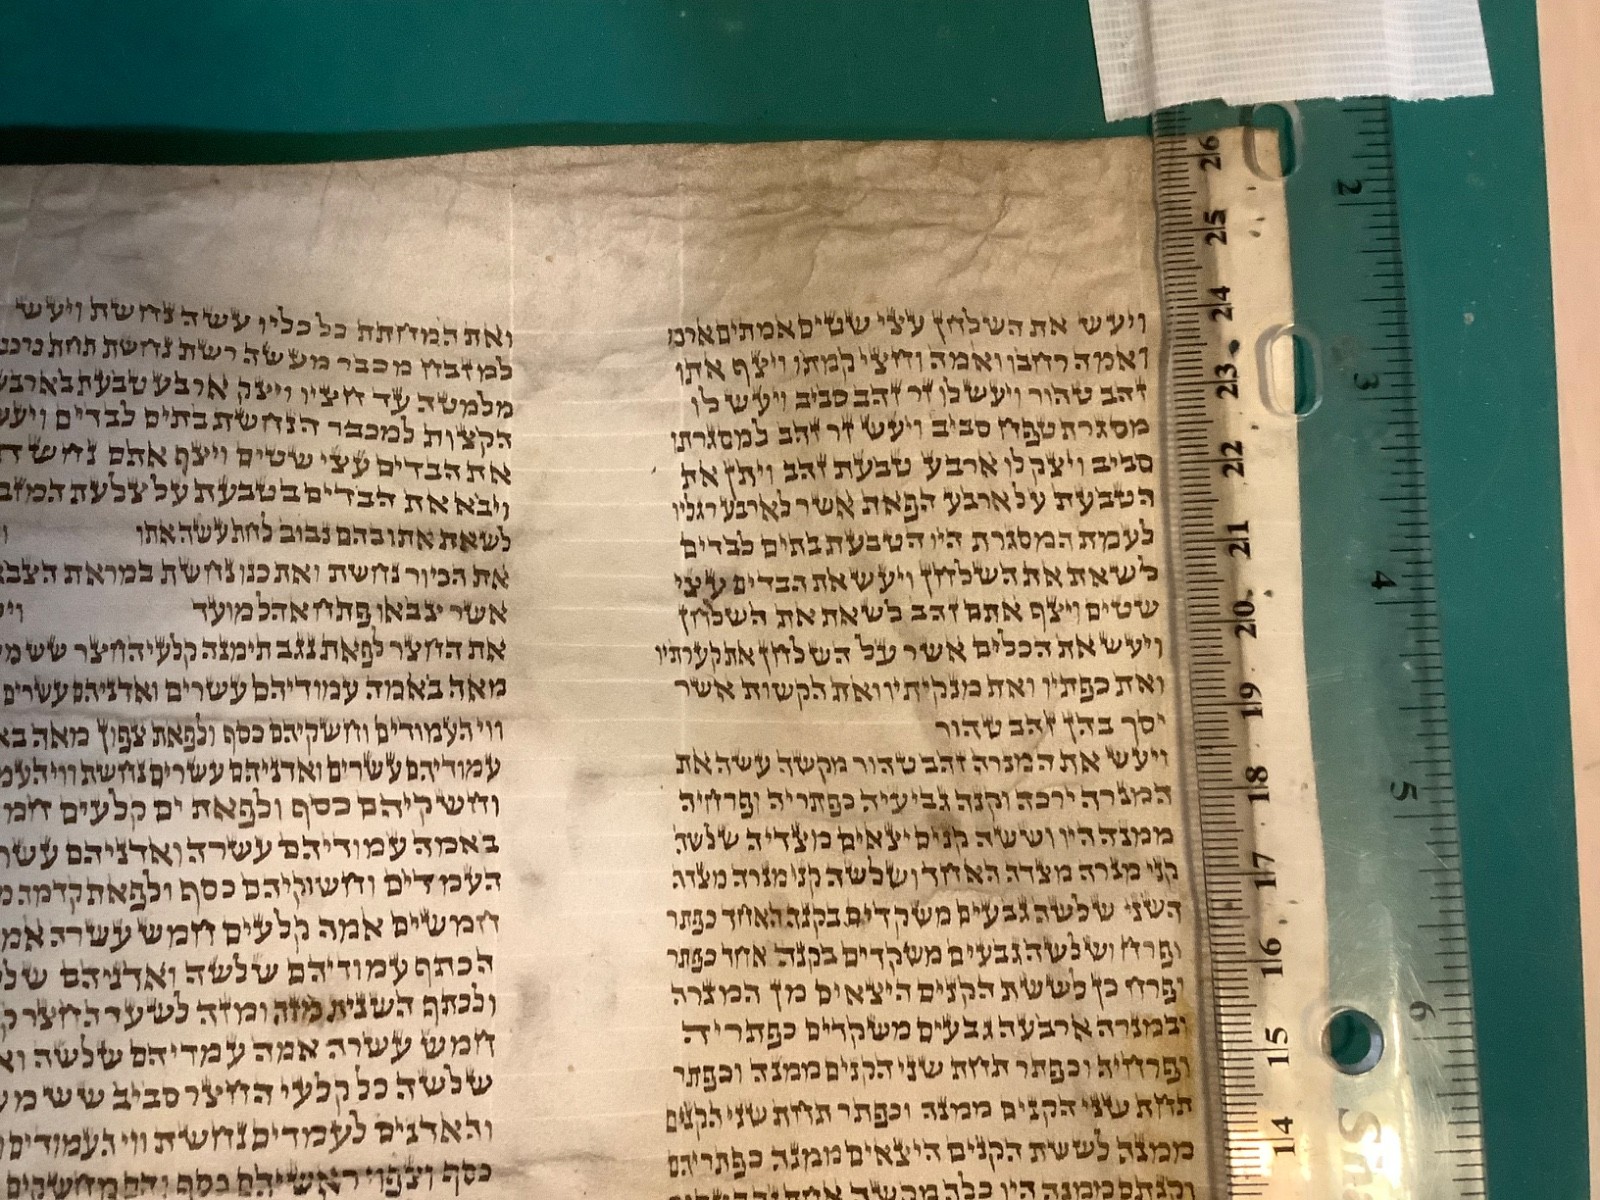 ויעש את השלחן עצי שטים אמתים ארכו
ואמה רחבו ואמה וחצי קמתו ויצף אתו
זהב טהור ויעש לו זר זהב סביב ויעש לו
מסגרת טפח סביב ויעש זר זהב למסגרתו
סביב ויצק לו ארבע טבעת זהב ויתן את
הטבעת על ארבע הפאת אשר לארבע רגליו
לעמת המסגרת היו הטבעת בתים לבדים
לשאת את השלחן ויעש את הבדים עצי
שטים ויצף אתם זהב לשאת את השלחן
ויעש את הכלים אשר על השלחן את קערתיו
ואת כפתיו ואת מנקיתיו ואת הקשות אשר
יסך בהן זהב טהור
ויעש את המנרה זהב טהור מקשה עשה את
המנרה ירכה וקנה גביעיה כפתריה ופרחיה
ממנה היו וששה קנים יצאים מצדיה שלשה
קני מנרה מצדה האחד ושלשה קני מנרה מצדה
השני שלשה גבעים משקדים בקנה האחד כפתר
ופרח ושלשה גבעים משקדים בקנה אחד כפתר
ופרח כן לששת הקנים היצאים מן המנרה
ובמנרה ארבעה גבעים משקדים כפתריה
ופרחיה וכפתר תחת שני הקנים ממנה וכפתר
תחת שני הקנים ממנה וכפתר תחת שני הקנים
ממנה לששת הקנים היצאים ממנה כפתריהם
וקנתם ממנה היו כלה מקשה אחת זהב
ואת המחתת כל כליו עשה נחשת ויעש
למזבח מכבר מעשה רשת נחשת תחת
מלמטה עד חציו ויצק ארבע טבעת
הקצות למכבר הנחשת בתים לבדים ויעש
את הבדים עצי שטים ויצף אתם
ויבא את הבדים בטבעת על צלעת
לשאת אתו בהם נבוב לחת עשה אתו
את הכיור נחשת ואת כנו נחשת במראת
אשר צבאו פתח אהל מועד
את החצר לפאת נגב תימנה קלעי החצר שש
מאה באמה עמודיהם עשרים ואדניהם עשרים
ווי העמודים וחשקיהם כסף ולפאת צפון מאה
עמודיהם עשרים ואדניהם עשרים נחשת
וחשקיהם כסף ולפאת ים קלעים
באמה עמודיהם עשרה ואדניהם
העמדים וחשוקיהם כסף ולפאת קדמה
חמשים אמה קלעים חמש עשרה
הכתף עמודיהם שלשה ואדניהם
ולכתף השנית מזה ומזה לשער החצר
חמש עשרה אמה עמדיהם שלשה
שלשה כל קלעי החצר סביב שש
והאדנים לעמדים נחשת ווי העמודים
כסף וצפוי ראשיהם כסף והם מחשקים
26
25
24
23
22
21
20
19
18
17
16
15
14
2
3
4
5
6